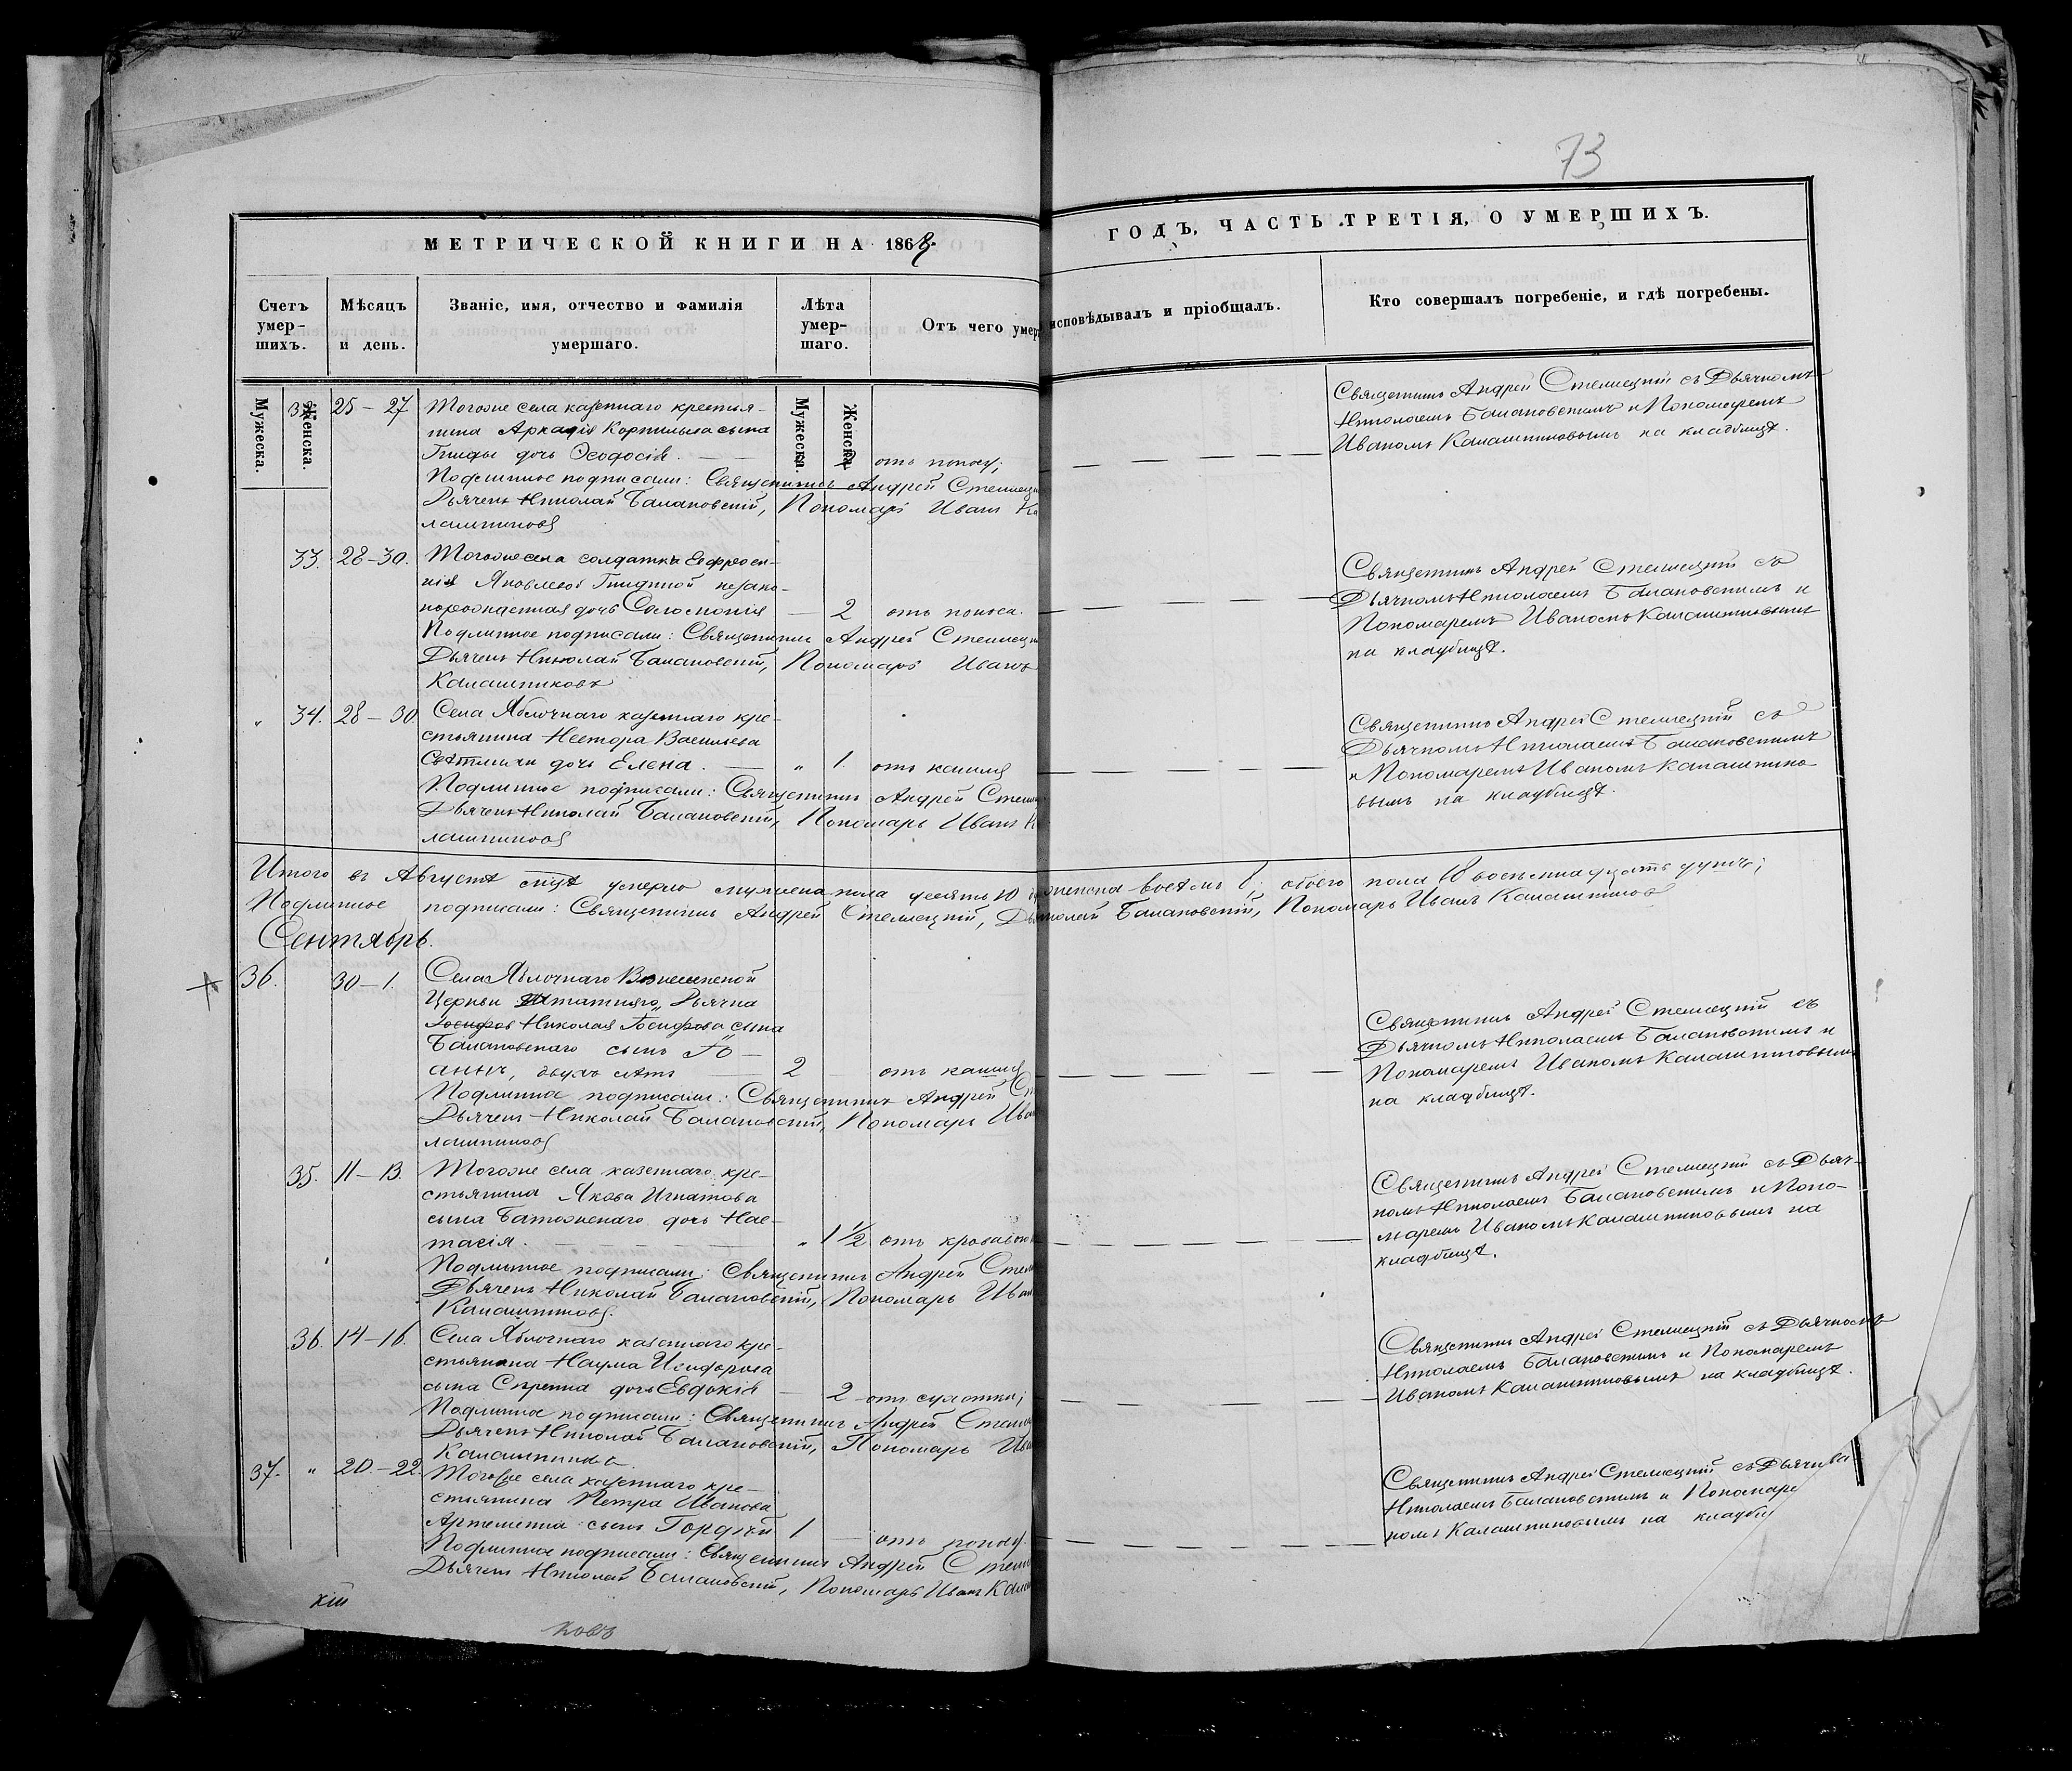 73
МЕТРИЧЕСКОЙ КНИГИ НА 1868
ГОДЪ, ЧАСТЬ ТРЕТІЯ, О УМЕРШИХЪ.
Счетъ умер-
шихъ.
Мѣсяцъ
и день.
Званіе, имя, отчество и фамилія
умершаго.
Лѣта
умер-
шаго.
Отъ чего умер
исповѣдывалъ и пріобщалъ.
Кто совершалъ погребеніе, и гдѣ погребены.
Мужеска.
Женска.
Мужеска.
Женска.
25 – 27 Тогоже села казеннаго крестья-
нина Аркадія Корнильева сына
дочь Ѳеодосія. отъ поносу;
Подлинное подписали: Священникъ Андрей
Дьячекъ Николай Балановскій, Пономарь Иванъ Ка
лашниковъ
Священникъ Андрей Стеллецкій съ Дьячкомъ
Николаемъ Балановскимъ и Пономаремъ
Иваномъ Калашниковымъ на кладбищѣ.
33. 28–30. Тогоже села солдатки Евфросин-
ніи Яковлевой незако-
норожденная дочь Соломонія — 2 отъ поноса.
Подлинное подписали: Священникъ Андрей
Дьячекъ Николай Балановскій, Пономарь Иванъ
Калашниковъ
Священникъ Андрей Стеллецкій съ
Дьячкомъ Николаемъ Балановскимъ и
Пономаремъ Иваномъ Калашниковымъ
на кладбищѣ.
" 34. 28 – 30 Села Яблочнаго казеннаго кре-
стьянина Нестора Васильева
дочь Елена. — " 1. отъ кашля
Подлинное подписали: Священникъ Андрей
Дьячекъ Николай Балановскій, Пономарь Иванъ К
лашниковъ
Священникъ Андрей Стеллецкій съ
Дьячкомъ Николаемъ Балановскимъ
и Пономаремъ Иваномъ Калашнико-
вымъ на кладбищѣ.
Итого въ Августѣ мцѣ умерло мужеска пола десять 10 женска восемь 8; обоего пола 18 восемнадцать душъ;
Подлинное подписали: Священникъ Андрей Стеллецкій, Дь николай Балановскій, Пономарь Иванъ Калашниковъ
Сентябрь.
36. 30 – 1. Села Яблочнаго Вознесенской
Церкви штатнаго Дьячка
Іосифов Николая Іосифова сына
Балановскаго сынъ Іо-
аннъ, двухъ лѣтъ — 2 отъ кашля
Подлинна подписали: Священникъ Андрей Ст
Дьячекъ Николай Балановскій, Пономарь Ива
лашниковъ
Священникъ Андрей Стеллецкій съ
Дьячкомъ Николаемъ Балановскимъ и
Пономаремъ Иваномъ Калашниковымъ
на кладбищѣ.
35. 11 – 13. Тогоже села казеннаго кре-
стьянина Якова Игнатова
сына дочь Нас-
тасія. " 1 1/2 отъ
Подлинное подписали: Священникъ Андрей
Дьячекъ Николай Балановскій, Пономарь Иван
Калашниковъ.
Священникъ Андрей Стеллецкій съ Дьяч-
комъ Николаемъ Балановскимъ и Поно-
маремъ Иваномъ Калашниковымъ на
кладбищѣ.
36. 14 – 16. Села Яблочнаго казеннаго кре-
стьянина Наума
сына дочь Евдокія — 2 отъ сухотки;
Подлинное подписали: Священникъ Андрей
Дьячекъ Николай Балановскій, Пономарь Ива
Калашниковъ.
Священникъ Андрей Стеллецкій съ Дьячкомъ
Николаемъ Балановскимъ и Пономаремъ
Иваномъ Калашниковымъ на кладбищѣ.
37. " 20. – 22. Тогоже села казеннаго кре-
стьянина Петра Иванова
сынъ Гордѣй 1 — отъ поносу.
Подлинна подписали: Священникъ Андрей
Дьячекъ Николай Балановскій, Пономарь Иванъ Кала
Священникъ Андрей Стеллецкій съ Дьячк Ива
Николаемъ Балановскимъ и Пономаре
номъ Калашниковымъ на кладби